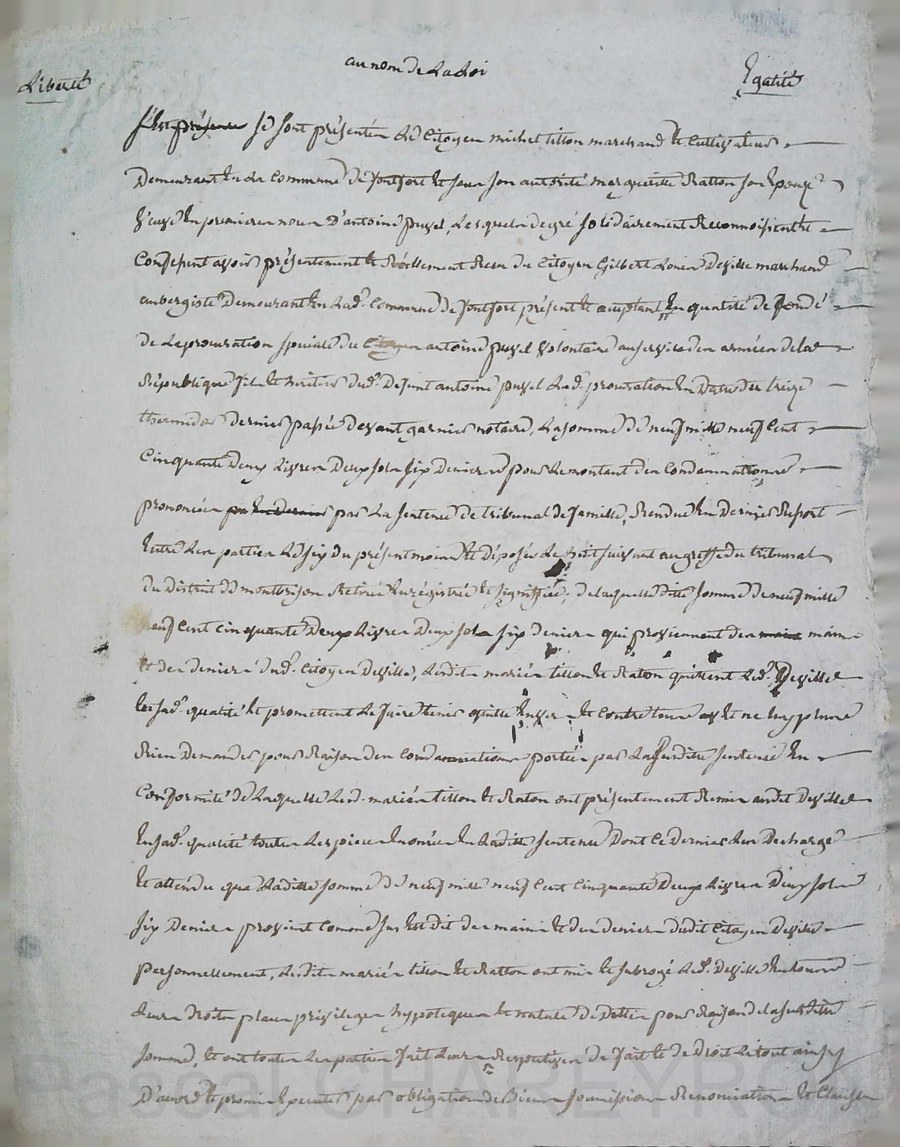 au nom de La Loi
Liberté
Egalité
S'Est présenté se sont présentés Le Citoyen michel tisson marchand Et Cultivateur
Demeurant En La Commune de Jonsfort Et sous son autorité marguerite Ratton son Epouze
Veuve En premieres noces D'antoine puzel, Lesquels degré solidairement Reconnoissent Et
Confessent avoir présentement Et Réellement Recu du Citoyen Gilbert Louis Deville marchand
aubergiste Demeurant En Lad. Commune de Jonsfort présent Et acceptant En qualité de fondé
de La procuration speciale du Citoyen antoine puzel Volontaire au service des armées de la
République fils Et heritier dud. Defunt antoine puzel Lad. procuration En Datte du treize
thermidor dernier passée devant garnier notaire, La somme de neuf mille neuf Cent
Cinquante Deux Livres Deux sols six Deniers pour Le montant des Condamnations
prononcées par La sentence de tribunal de famille, Rendue En Dernier Resort
Entre Les parties Le six du présent mois Et déposée Le huit suivant au greffe du tribunal
du District de montbrison Retirée Enregistrée Et signiffiée; de laquelle ditte somme de neuf mille
neuf Cent cinquante Deux Livres Deux sols six deniers qui proviennent des mains
Et des deniers dud. Citoyen Deville, Lesdits mariés tisson Et Raton quittent Led. Deville
En sad. qualité Et promettent Le faire tenir quitte Envers Et Contre tous avec
Rien Demander pour Raison des Condamnations portées par La susditte sentence En
Conformité de Laquelle Lesd. mariés tisson Et Raton ont présentement Remis audit Deville
En sad. qualité toutes Les pieces Enoncées En Laditte sentence Dont Ce dernier Les Decharge
Et attendu que Laditte somme de neuf mille neuf Cent Cinquante Deux Livres Deux sols
six Deniers provient Comme sus Est dit des mains Et des deniers dudit Citoyen Deville
personnellement, Lesdits mariés tisson Et Ratton ont mis Et subrogé Led. Deville En tous
Leurs droits place privileges hypoteques Et nature De Dettes pour Raison de la susditte
somme, Et ont toutes Les parties fait Leurs Respectives de fait Et de Droit Le tout ainsy
D'accord Et promis Executer par obligation de Biens soumissions Renonciations Et Clauses